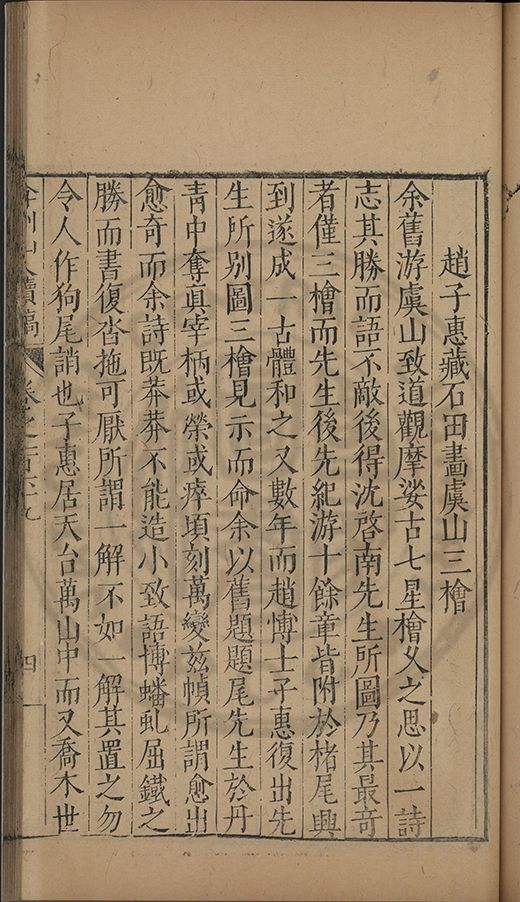 趙子惠藏石田畵虞山三檜
余舊游虞山致道觀摩娑古七星檜乆之思以一詩
志其勝而語不敵後得沈啓南先生所圖乃其最奇
者僅三檜而先生後先紀游十餘章皆附於楮尾興
到遂成一古體和之又數年而趙博士子惠復出先
生所别圖三檜見示而命余以舊題題尾先生於丹
青中奪眞宰柄或榮或瘁頃刻萬變兹幀所謂愈出
愈奇而余詩旣莽莽不能造小致語博蟠虬屈鐵之
勝而書復沓拖可厭所謂一解不如一解其置之勿
令人作狗尾誚也子惠居天台萬山中而又喬木世
弇州山人續稿 卷之一百六十九 四